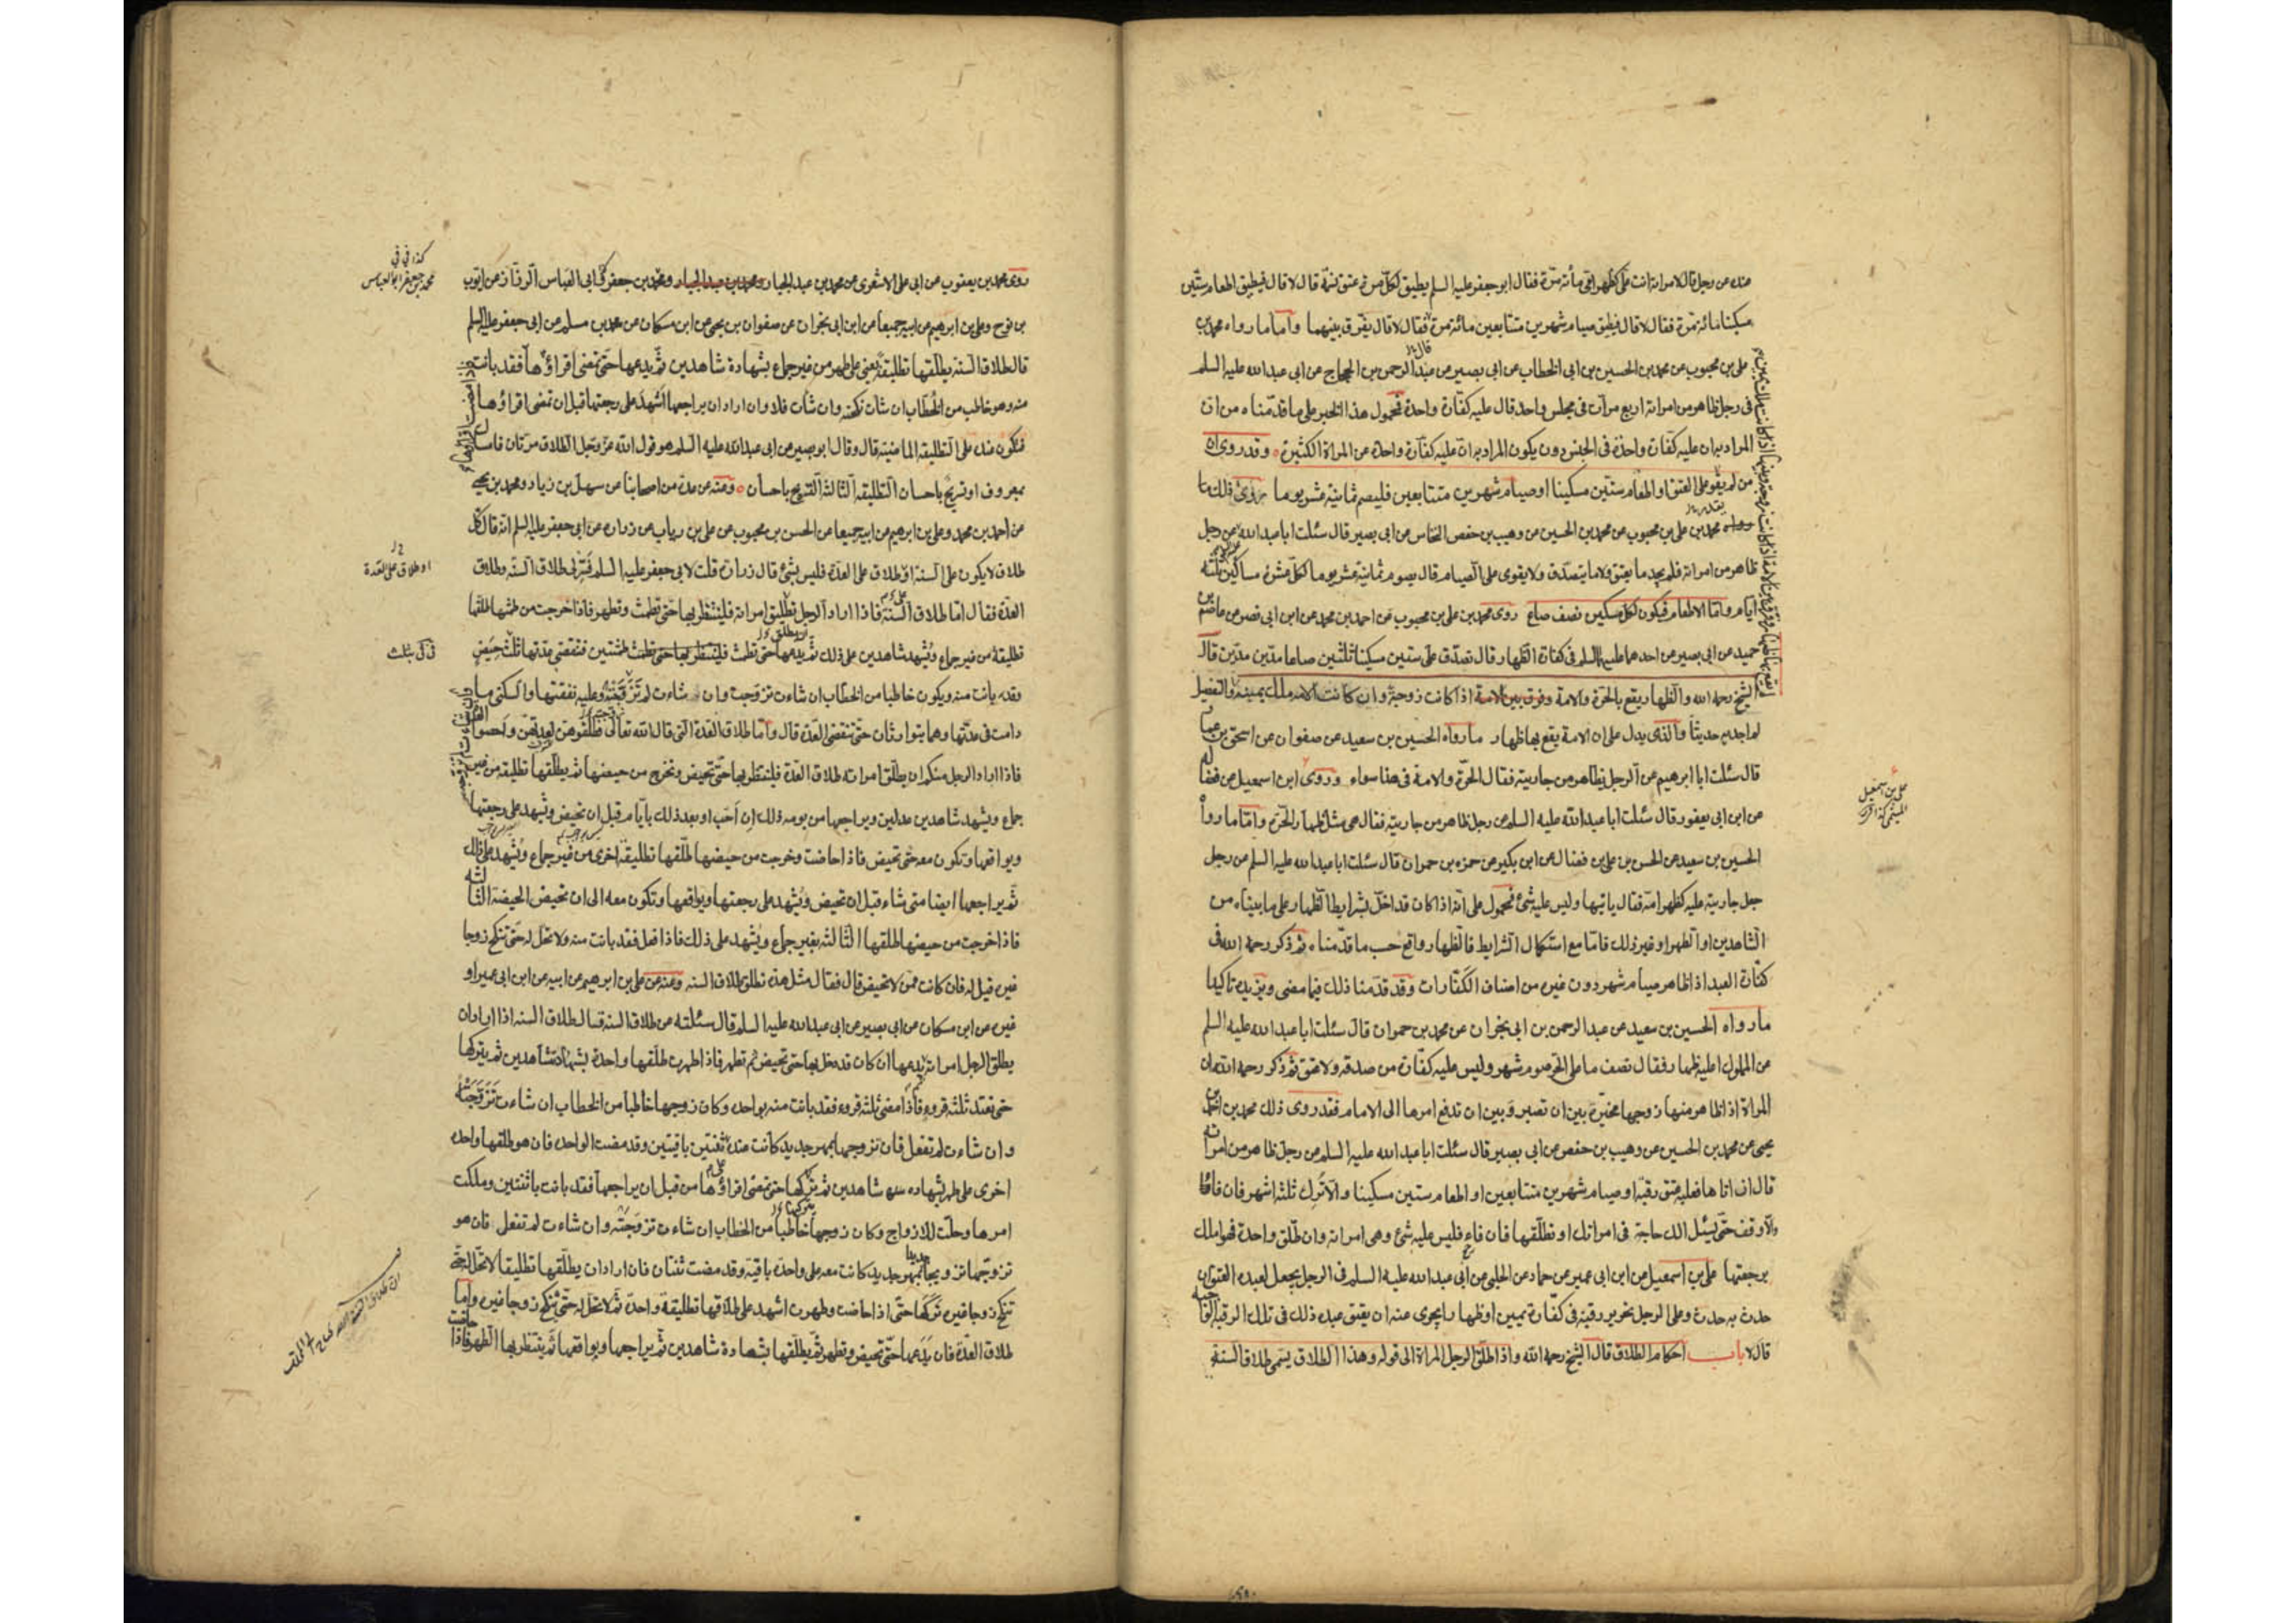 عنده عن رجل قال لامراته انت علىّ كظهر امّى مأئة مرّة فقال ابو جعفر عليه السلم يطيق لكلّ مرة عتق نسمة قال لا قال فيطيق اطعام ستّين
مسكينا مائة مرّة فقال لا قال فيطيق صيام شهرين متتابعين مائة مرة فقال لا قال يفرّق بينهما وامّا ما رواه محمد بن
على بن محبوب عن محمد بن الحسين بن ابى الخطاب عن ابى بصير عن عبد الرحمن بن الحجاج عن ابى عبد الله عليه السلم
قال
فى رجل ظاهر من امراته اربع مرّات فى مجلس واحد قال عليه كفّارة واحدة فمحمول هذا الخبر على ما قدّمناه من ان
المراد به ان عليه كفّارة واحدة فى الجنس دون يكون المراد به انّ عليه كفّارة واحدة عن المراة الكثيرة وقد روى ان
من لم يقو على العتق او اطعام ستّين مسكينا او صيام شهرين متتابعين فليصم ثمانية عشر يوما روى ذلك ما
رواه محمد بن على بن محبوب عن محمد بن الحسين عن وهيب بن حفص النخاس عن ابى بصير قال سئلت ابا عبد الله عن رجل
ظاهر من امراته فلم يجد ما يعتق ولا ما يتصدّق ولا يقوى على الصيام قال يصوم ثمانية عشر يوما لكلّ عشرة مساكين ثلثة
ايام وامّا الاطعام فيكون لكل مسكين نصف صاع روى محمد بن على بن محبوب عن احمد بن محمد عن ابن ابى نصر عن عاصم بن
حميد عن ابى بصير عن احدهما عليهما السلم فى كفارة الظهار قال تصدّق على ستين مسكينا ثلثين صاعا مدّين مدّين قال
الشيخ رحمه الله والظهار يقع بالحرّة والامة وفرق بين الامة اذا كانت زوجة وان كانت الامة ملك يمينه والتفصيل
لم اجد به حديثا والذى يدل على ان الامة يقع بها ظهار ما رواه الحسين بن سعيد عن صفوان عن اسحق بن عمار
قال سئلت ابا ابرهيم عن الرجل يظاهر من جاريته فقال الحرّة والامة فى هذا سواء وروى ابن اسمعيل عن فضالة
على بن اسمعيل
عن ابن ابى يعفور قال سئلت ابا عبد الله عليه السلم عن رجل ظاهر من جاريته فقال هى مثل ظهار الحرّة وامّا ما رواه
الحسين بن سعيد عن الحسن بن على بن فضال عن ابن بكير عن حمزه بن حمران قال سئلت ابا عبد الله عليه السلم عن رجل
جعل جاريته عليه كظهر امّه فقال ياتيها وليس عليه شئ فمحمول على انه اذا كان قد اخلّ بشرايط الظهار على ما بيناه من
الشاهدين او الطهر او غير ذلك فامّا مع استكمال الشرايط فالظهار واقع حسب ما قدّمناه ثم ذكر رحمه الله فى
كفّارة العبد اذا ظاهر صيام شهر دون غيره من اصناف الكفّارات وقد قدّمنا ذلك فيما مضى ويزيده تاكيدا
ما رواه الحسين بن سعيد عن عبد الرحمن بن ابى نجران عن محمد بن حمران قال سئلت ابا عبد الله عليه السلم
عن المملوك اعليه ظهار فقال نصف ما على الحرّ صوم شهر وليس عليه كفّارة من صدقه ولا عتق ثم ذكر رحمه الله ان
المراة اذا ظاهر منها زوجها مخيّرة بين ان تصبر وبين ان تدفع امرها الى الامام فقد روى ذلك محمد بن احمد بن
يحيى عن محمد بن الحسين عن وهيب بن حفص عن ابى بصير قال سئلت ابا عبد الله عليه السلم عن رجل ظاهر من امراته
قال ان اتاها فعليه عتق رقبة او صيام شهرين متتابعين او اطعام ستين مسكينا والا ترك ثلثة اشهر فان فاء
والّا وقف حتى يسئل الك حاجة فى امراتك او تطلّقها فان فاء فليس عليه شئ وهى امراته وان طلّق واحدة فهو املك
برجعتها على بن اسمعيل عن ابن ابى عمير عن حماد عن الحلبى عن ابى عبد الله عليه السلم فى الرجل يجعل لعبده العتق ان
حدث به حدث وعلى الرجل تحرير رقبة فى كفّارة يمين او ظهار ايجزى عنه ان يعتق عبده ذلك فى تلك الرقبة الواجبة
قال لا باب احكام الطلاق قال الشيخ رحمه الله واذا طلّق الرجل المراة الى قوله وهذا الطلاق يسمى طلاق السنة
روى محمد بن يعقوب عن ابى على الاشعرى عن محمد بن عبد الجبار ومحمد بن عبد الجبار ومحمد بن جعفر ابى العباس الرزّاز عن ايوب
كذا فى فى
محمد بن جعفر ابو العباس
بن نوح وعلى بن ابرهيم عن ابيه جميعا عن ابن ابى نجران عن صفوان بن يحيى عن ابن مسكان عن محمد بن مسلم عن ابى جعفر عليه السلم
قال طلاق السنة يطلّقها تطليقة يعنى على طهر من غير جماع بشهادة شاهدين ثم يدعها حتى تمضى اقراؤها فقد بانت
منه وهو خاطب من الخطّاب ان شات نكحته وان شات فلا وان اراد ان يراجعها اشهد على رجعتها قبل ان تمضى اقراؤها
فتكون عنده على التطليقة الماضية قال وقال ابو بصير عن ابى عبد الله عليه السلم هو قول الله عز وجل الطلاق مرتان فامساك
بمعروف او تسريح باحسان التطليقة الثالثة التسريح باحسان وعنه عن عدة من اصحابنا عن سهل بن زياد ومحمد بن يحيى
عن احمد بن محمد وعلى بن ابرهيم عن ابيه جميعا عن الحسن بن محبوب عن على بن رياب عن زرارة عن ابى جعفر عليه السلم انه قال كلّ
طلاق لا يكون على السنة او طلاق على العدّة فليس بشئ قال زرارة قلت لابى جعفر عليه السلم فسّر لى طلاق السنّة وطلاق
او طلاق على العدة
العدّة فقال امّا طلاق السنّة فاذا اراد الرجل تطليق امراته فلينتظر بها حتى تطمث وتطهر فاذا خرجت من طمثها طلقها
تطليقة من غير جماع ويشهد شاهدين على ذلك ثم يدعها حتى تطمث فلينتظر بها حتى تطمث طمثتين فتنقضى عدّتها بثلث حيض
وقد بانت منه ويكون خاطبا من الخطّاب ان شاءت تزوجت وان شاءت لم تزوّجته وعليه نفقتها والسكنى ما
دامت فى عدّتها وهما يتوارثان حتى تنقضى العدّة قال وامّا طلاق العدّة التى قال الله تعالى فطلّقوهنّ لعدتهنّ واحصوا
فاذا اراد الرجل منكم ان يطلّق امراته طلاق العدّة فلينتظر بها حتى تحيض وتخرج من حيضها ثم يطلّقها تطليقة من غير
جماع ويشهد شاهدين عدلين ويراجعها من يومه ذلك ان احبّ او بعد ذلك بايّام قبل ان تحيض ويشهد على رجعتها
ويواقعها وتكون معه حتى تحيض فاذا حاضت وخرجت من حيضها طلّقها تطليقة اخرى من غير جماع ويشهد على ذلك
ثم يراجعها ايضا متى شاء قبل ان تحيض ويشهد على رجعتها ويواقعها وتكون معه الى ان تحيض الحيضة الثالثة
فاذا خرجت من حيضها طلقها الثالثة بغير جماع ويشهد على ذلك فاذا فعل فقد بانت منه ولا تحل له حتى تنكح زوجا
غيره قيل له فان كانت ممّن لا تحيض قال فقال مثل هذه تطلق طلاق السنة وعنه عن على بن ابرهيم عن ابيه عن ابن ابى عمير او
غيره عن ابن مسكان عن ابى بصير عن ابى عبد الله عليه السلم قال سئلته عن طلاق السنة قال طلاق السنة اذا اراد ان
يطلق الرجل امراته يدعها ان كان قد دخل بها حتى تحيض ثم تطهر فاذا طهرت طلّقها واحدة بشهادة شاهدين ثم يتركها
حتى تعتد ثلثة قروء فاذا مضى ثلثة قروء فقد بانت منه بواحدة وكان زوجها خاطبا من الخطاب ان شاءت تزوّجته
وان شاءت لم تفعل فان تزوجها بمهر جديد كانت عنده ثنتين باقيتين وقد مضت الواحدة فان هو طلقها واحدة
اخرى على طهر بشهاده شاهدين ثم تركها حتى تمضى اقراؤها من قبل ان يراجعها فقد بانت باثنتين وملكت
امرها وحلّت للازواج وكان زوجها خاطبا من الخطاب ان شاءت تزوّجته وان شاءت لم تفعل فان هو
تزوّجها تزويجا بمهر جديد كانت معه على واحدة باقية وقد مضت ثنتان فان اراد ان يطلّقها تطليقا لا تحل له حتى
تنكح زوجا غيره تركها حتى اذا حاضت وطهرت اشهد على طلاقها تطليقة واحدة ثم لا تحل له حتى تنكح زوجا غيره وامّا
طلاق العدّة فان يدعها حتى تحيض وتطهر ثم يطلّقها بشهادة شاهدين ثم يراجعها ويواقعها ثم ينتظر بها الطهر فاذا